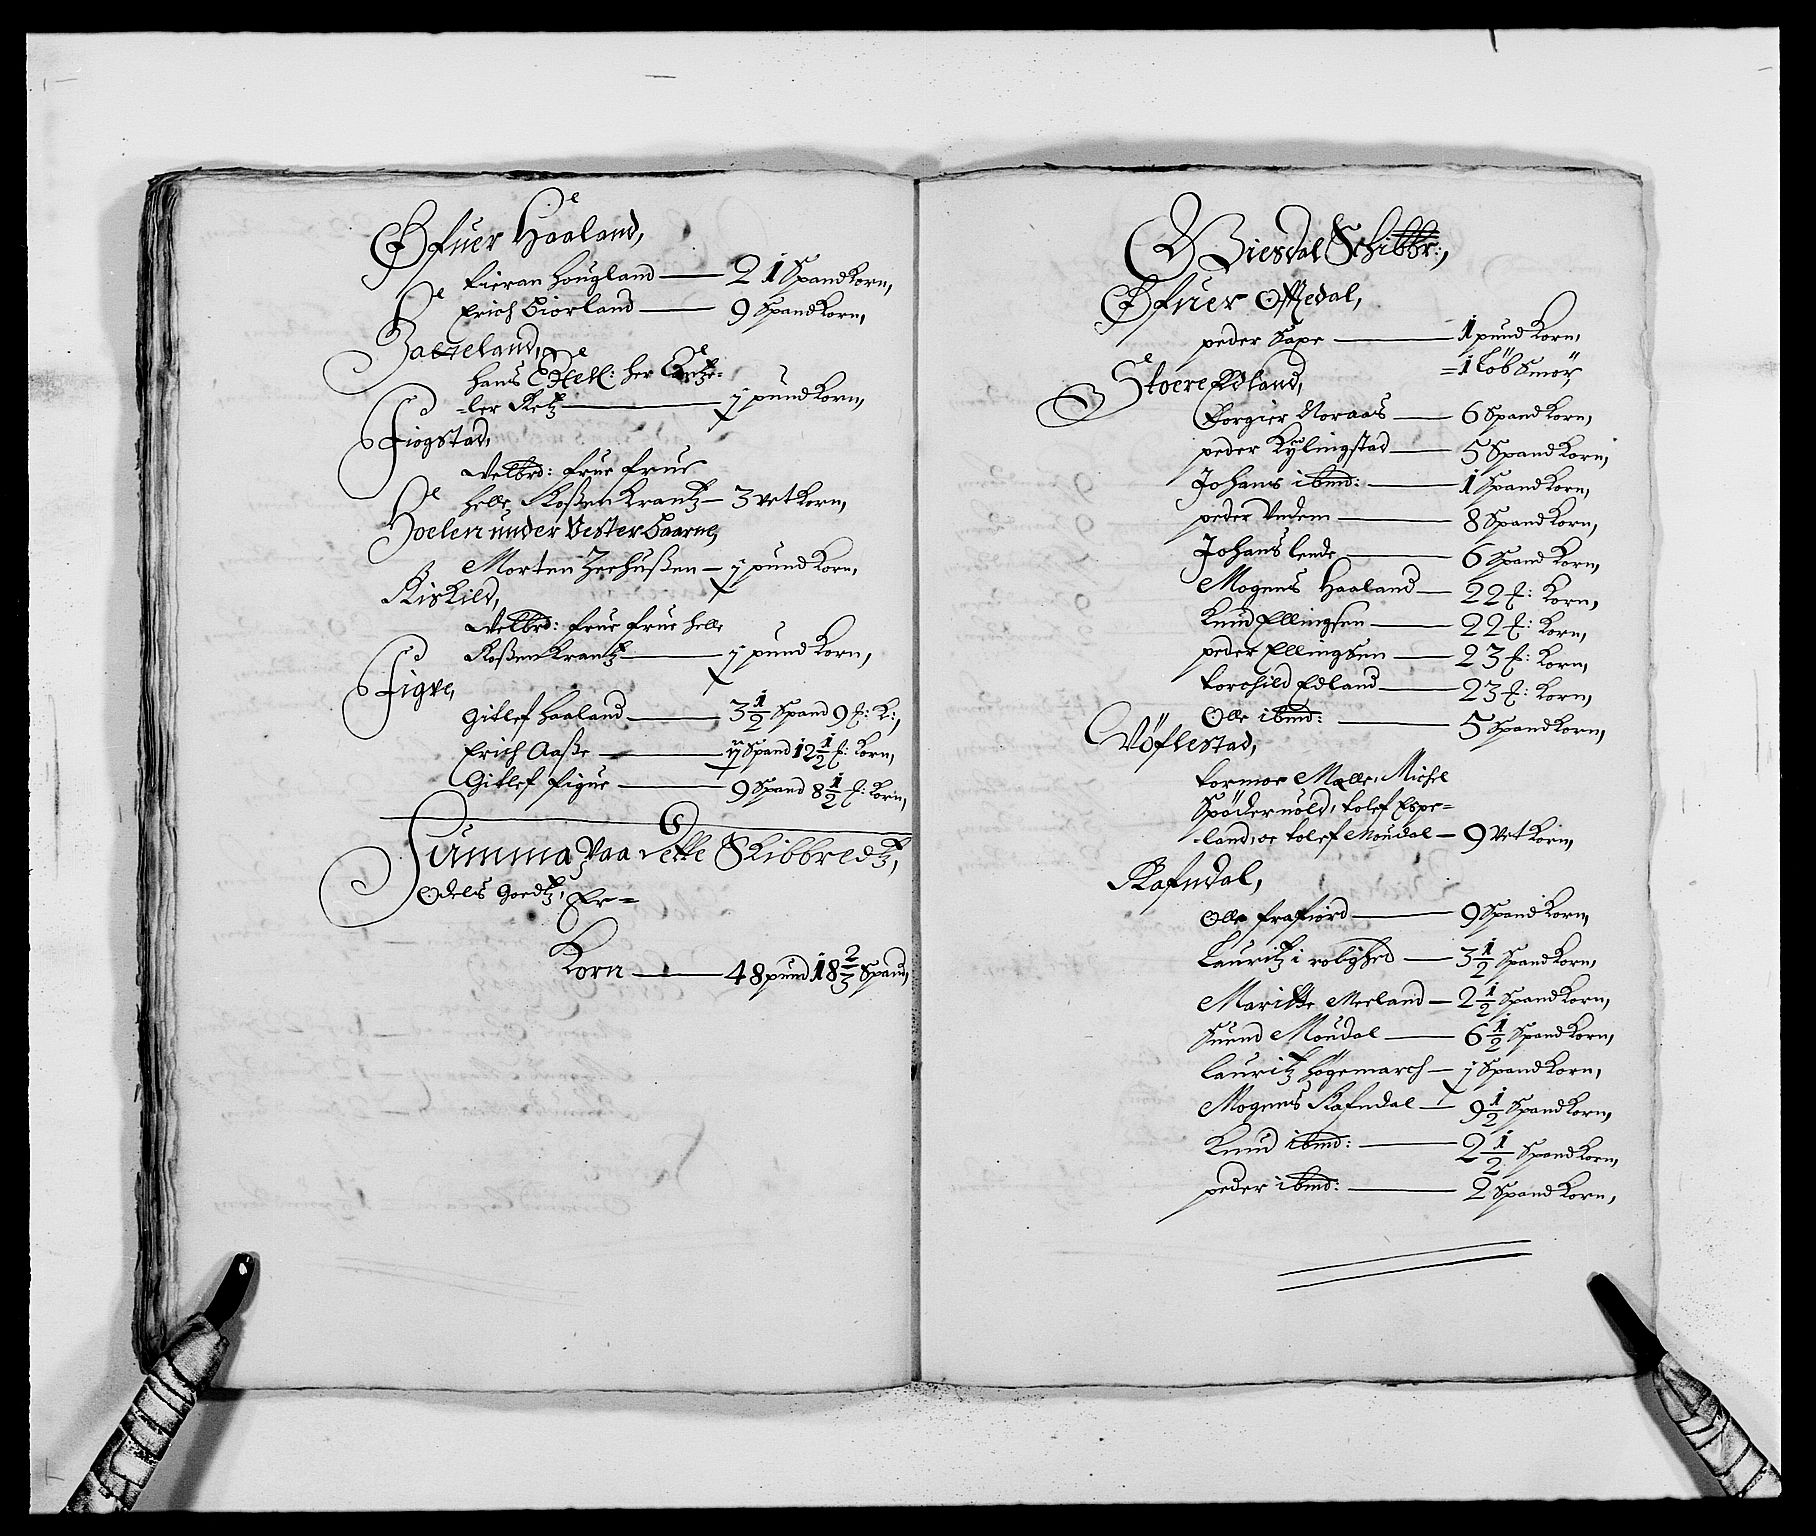 Øfuer Haaland,
Fieran Hougland — 21 Spand Korn,
Erich Biorland — 9 Spand Korn,
Hans
ler Retz — ij pund Korn,
Fiogstad,
Velbrd: frue frue
Helle Roßen Krantz — 3 vet Korn,
Hoelen under Vester Baarne,
Morten Zeehußen — ij pund Korn,
Kiskild,
Velbrd: frue frue Helle
Roßen Krantz — ij pund Korn,
Figve,
Gitlef Haaland — 3 1/2 Spand 9 f: K:,
Erich Aaße — ij Spand 12 1/2 f: Korn,
Gitlef Figue — 9 Spand 8 1/2 f: Korn,
Summa Paa dette Skibbredtz,
Odels Goedtz, Er=
Korn — 48 pund 18 2/3 Spand,
Giesdal Schibbr:,
Øfuer Offedal,
peder Sape — 1 pund Korn,
=1 Löb Smör,
Stoere Edland,
Borgier Noraas — 6 Spand Korn,
peder Kÿlingstad — 5 Spand Korn,
Johans ibmd: — 1 Spand Korn,
peder Undem — 8 Spand Korn,
Johans Lende — 6 Spand Korn,
Mogens Haaland — 22 f: Korn,
Knud Ellingsen — 22 f: Korn,
peder Ellingsen — 23 f: Korn,
Torchild Edland — 23 f: Korn,
Olle ibmd: — 5 Spand Korn,
Vöflestad,
Tormoe Mælle, Michel
Spödervold, Tolef Espe=
land, oc Tolef Moudal — 9 Vet Korn,
Rafndal,
Olle Frafiord — 9 Spand Korn,
Lauritz i — 3 1/2 Spand Korn,
Maritte Meeland — 2 1/2 Spand Korn,
Suend Moudal — 6 1/2 Spand Korn,
Lauritz Högemarch — ij Spand Korn,
Mogens Rafndal — 9 1/2 Spand Korn,
Knud ibmd: — 2 1/2 Spand Korn,
peder ibmd: — 2 Spand Korn,